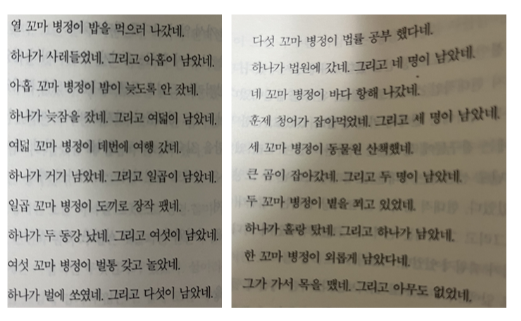 열 꼬마 병정이 밥을 먹으러 나갔네.
하나가 사레들었네. 그리고 아홉이 남았네.
아홉 꼬마 병정이 밤이 늦도록 안 잤네.
하나가 늦잠을 잤네. 그리고 여덟이 남았네.
여덟 꼬마 병정이 데번에 여행 갔네.
하나가 거기 남았네. 그리고 일곱이 남았네.
일곱 꼬마 병정이 도끼로 장작 팼네.
하나가 두 동강 났네. 그리고 여섯이 남았네.
여섯 꼬마 병정이 벌통 갖고 놀았네.
하나가 벌에 쏘였네. 그리고 다섯이 남았네.
다섯 꼬마 병정이 법률 공부 했다네.
하나가 법원에 갔네. 그리고 네 명이 남았네.
네 꼬마 병정이 바다 항해 나갔네.
훈제 청어가 잡아먹었네. 그리고 세 명이 남았네.
세 꼬마 병정이 동물원 산책했네.
큰 곰이 잡아갔네. 그리고 두 명이 남았네.
두 꼬마 병정이 볕을 쬐고 있었네.
하나가 홀랑 탔네. 그리고 하나가 남았네.
한 꼬마 병정이 외롭게 남았다네.
그가 가서 목을 맸네. 그리고 아무도 없었네.